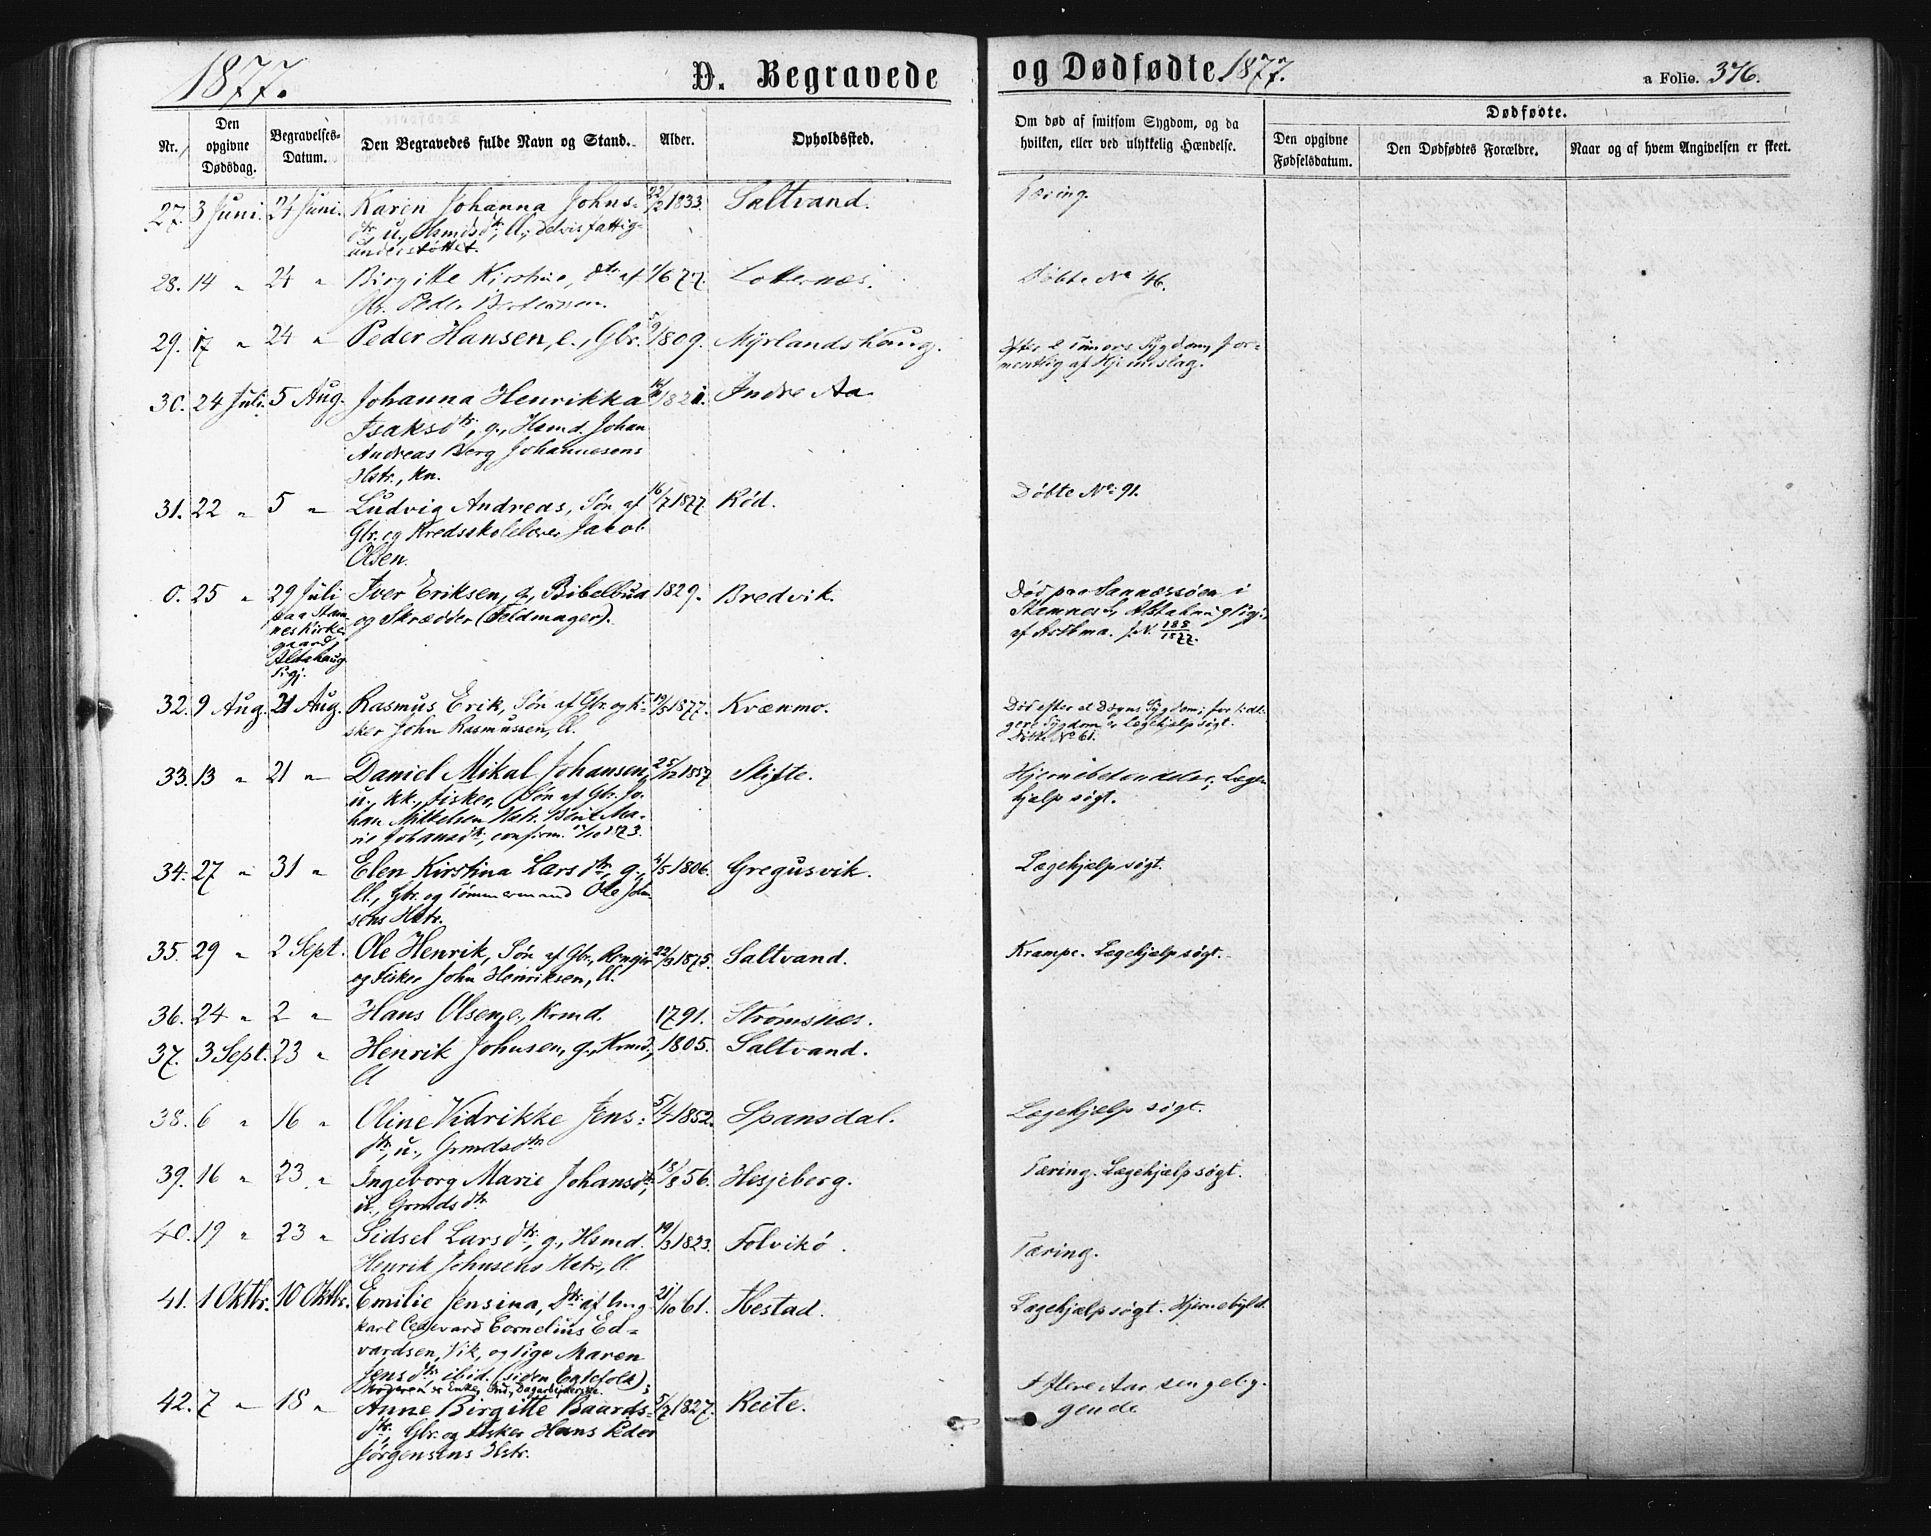 1877.
D. Begravede
og Dødfødte 1877.
a Folio. 376.
Nr.
Den opgivne Dødsdag.
Begravelses-Datum.
Den Begravedes fulde Navn og Stand.
Alder.
Opholdssted.
Om død af smitsom Sygdom, og da hvilken, eller ved ulykkelig Hændelse.
Dødfødte.
Den opgivne Fødselsdatum.
Den Dødfødtes Forældre.
Naar og af hvem Angivelsen er skeet.
27. 3 Juni. 24 Juni. Karen Johanna Johns- 22/2 1833. Saltvand. Tæring.
dtr, u., Hsmdsdtr, ll., delvis fattig-
understøttet.
28. 14 " 24 " Birgitte Kirstine, dtr af /6 77. Lotternes. Døbte No 46.
Gbr. Peder Berteussen.
29. 17 " 24 " Peder Hansen, e., Gbr. /9 1809. Myrlandshaug. Efter 2 Timers Sygdom, for-
mentlig af Hjerneslag.
30. 24 Juli. 5 Aug. Johanna Henrikka 1821. Indre Aa
Isaksdtr, g., Hsmd. Johan
Andreas Berg Johannesens
Hstr., kn.
31. 22 " 5 " Ludvig Andreas, Søn af 16/7 1877. Rød. Døbte No. 91.
Gbr. og Kredsskolelærer Jakob
Olsen.
0. 25 " 29 Juli Iver Eriksen, g., Bibelbud 1829. Bredvik. Død paa Sannæssøen i
paa Stam- og Skrædder (Feldmager). Stamnes S, Alstahaug Pgj.,
nes Kirke- af Asthma. J.N. 185/1877.
gaard,
Alstahaug
Pgj.
32. 9 Aug. 21 Aug. Rasmus Erik, Søn af Gbr. og Fi- 19/5 1877. Kvænmo. Død efter et Døgns Sygdom; for tidli-
sker John Rasmussen, ll. gere Sygdom er Lægehjælp søgt.
Døbte No 61.
33. 13 " 21 " Daniel Mikal Johansen, 25/12 1857. Slifte. Hjernebetændelse; Læge-
u., kk., fisker, Søn af Gbr. Jo- hjælp søgt.
han Mikkelsen Hstr. Berit Ma-
rie Johansdtr; confirm. /10 1873.
34. 27 " 31 " Elen Kirstina Larsdtr, g., /5 1806. Gregusvik. Lægehjælp søgt.
ll., Gbr. og Tømmermand Ole John-
sens Hstr.
35. 29 " 2 Sept. Ole Henrik, Søn af Gbr., Ringer 22/9 1875. Saltvand. Krampe. Lægehjælp søgt.
og Fisker John Henriksen, ll.
36. 24 " 2 " Hans Olsen, e., Krmd. 1791. Strømsnes.
37. 3 Sept. 23 " Henrik Johnsen, g., Krmd., 1805. Saltvand.
ll
38. 6 " 16 " Oline Vidrikke Jens- 5/4 1852. Spansdal. Lægehjælp søgt.
dtr, u., Grmdsdtr
39. 16 " 23 " Ingeborg Marie Johansdtr, /8 56. Hesjeberg. Tæring. Lægehjælp søgt.
u., Grmdsdtr
40. 19 " 23 " Sidsel Larsdtr, g., Hsmd. 19/3 1823. Folvikø. Tæring.
Henrik Johnsens Hstr., ll.
41. 1 Oktbr. 10 Oktbr. Emilie Jensina, Dtr af Ung- 21/10 61. Hestad. Lægehjælp søgt. Hjernebyld.
karl Edevard Cornelius Ed-
vardsen, Vik, og Pige Maren
Jensdtr ibid. (siden Egtefolk);
Moderen er Enke, Ind., Dagarbeiderske.
42. 7 " 18 " Anne Birgitte Baards- 5/7 1827. Reite. I flere Aar sengelig-
dtr, Gbr. og Fisker Hans Peder gende
Jørgensens Hstr.